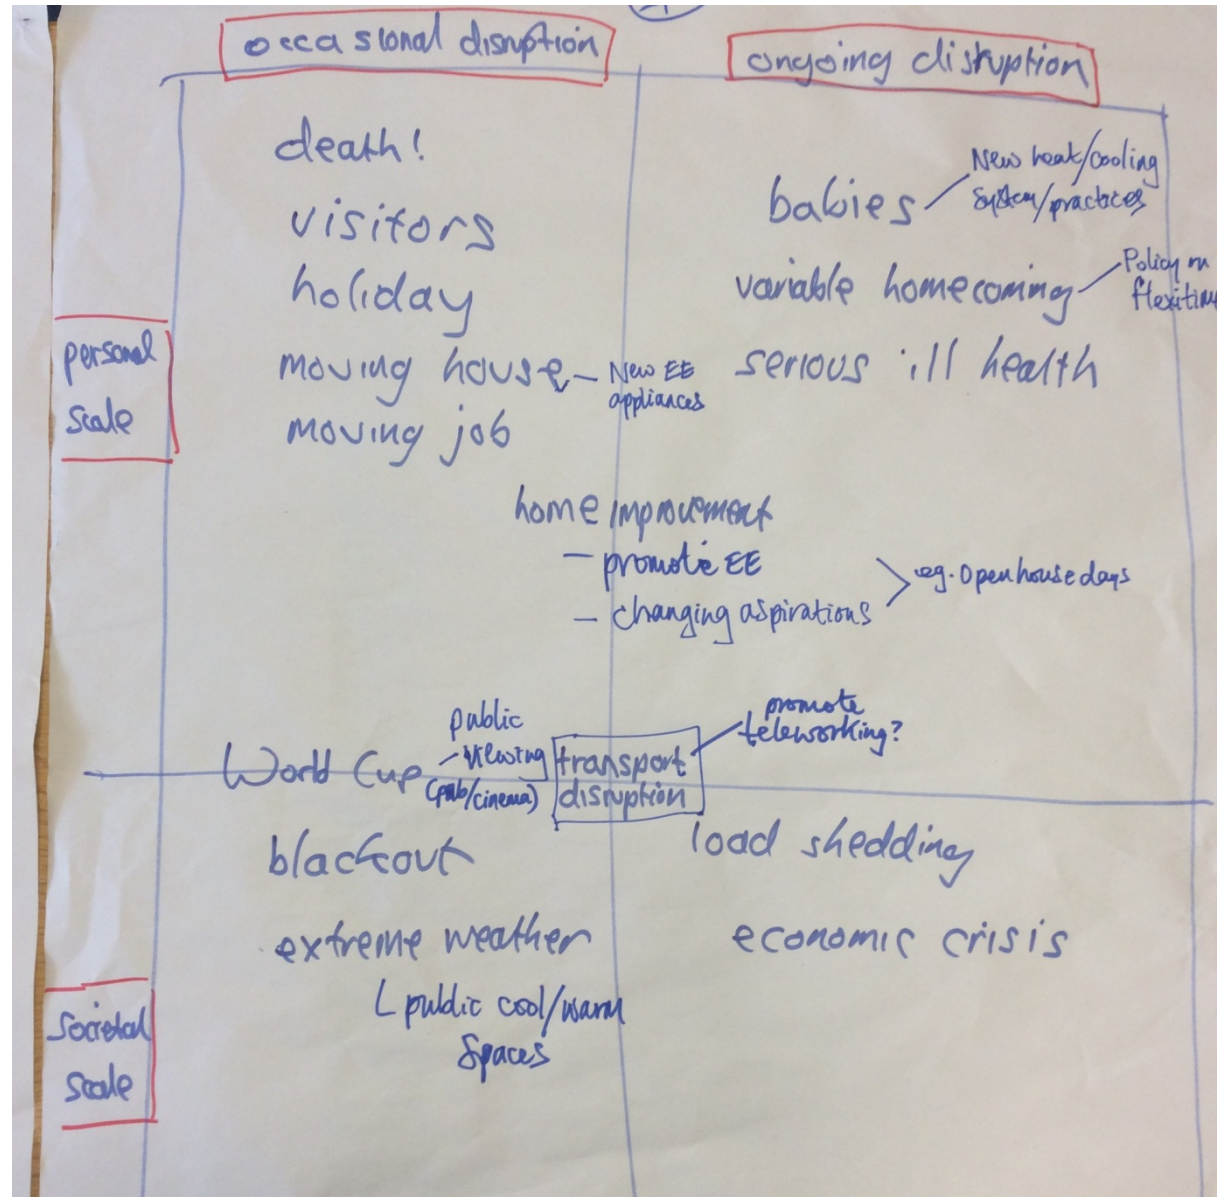 occasional disruption
ongoing disruption
personal
scale
death!
visitors
holiday
moving house - New EE
appliances
moving job
babies
New heat/cooling
system/practices
variable homecoming
Policy on
flexitime
serious ill health
home improvement
- promote EE
- changing aspirations
eg. Open house days
World Cup
public
viewing
(pub/cinema)
transport
disruption
promote
teleworking?
societal
scale
blackout
extreme weather
public cool/warm
Spaces
load shedding
economic crisis